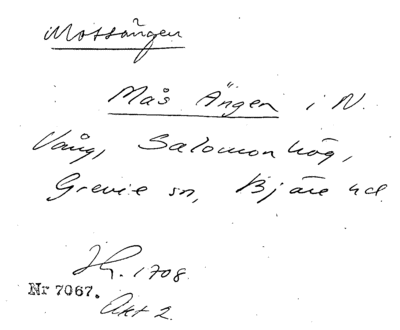 Mossängen
Mås Ängen i N.
Vång, Salomonhög,
Grevie sn, Bjäre hd.
Jh. 1708.
Nr 7067.
Akt 2.